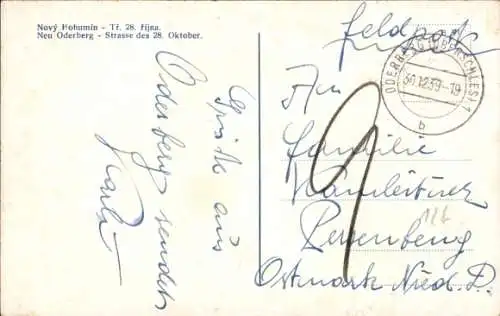 Nový Bohumín - Tř. 28. října.
Neu Oderberg - Strasse des 28. Oktober.
Feldpost
ODERBERG (OBERSCHLES) 1
30.12.39-19
b
Grüße aus
Oderberg sendet
Karla
An
Familie
Persenbeug
Ostmark Nied. D.
9
126